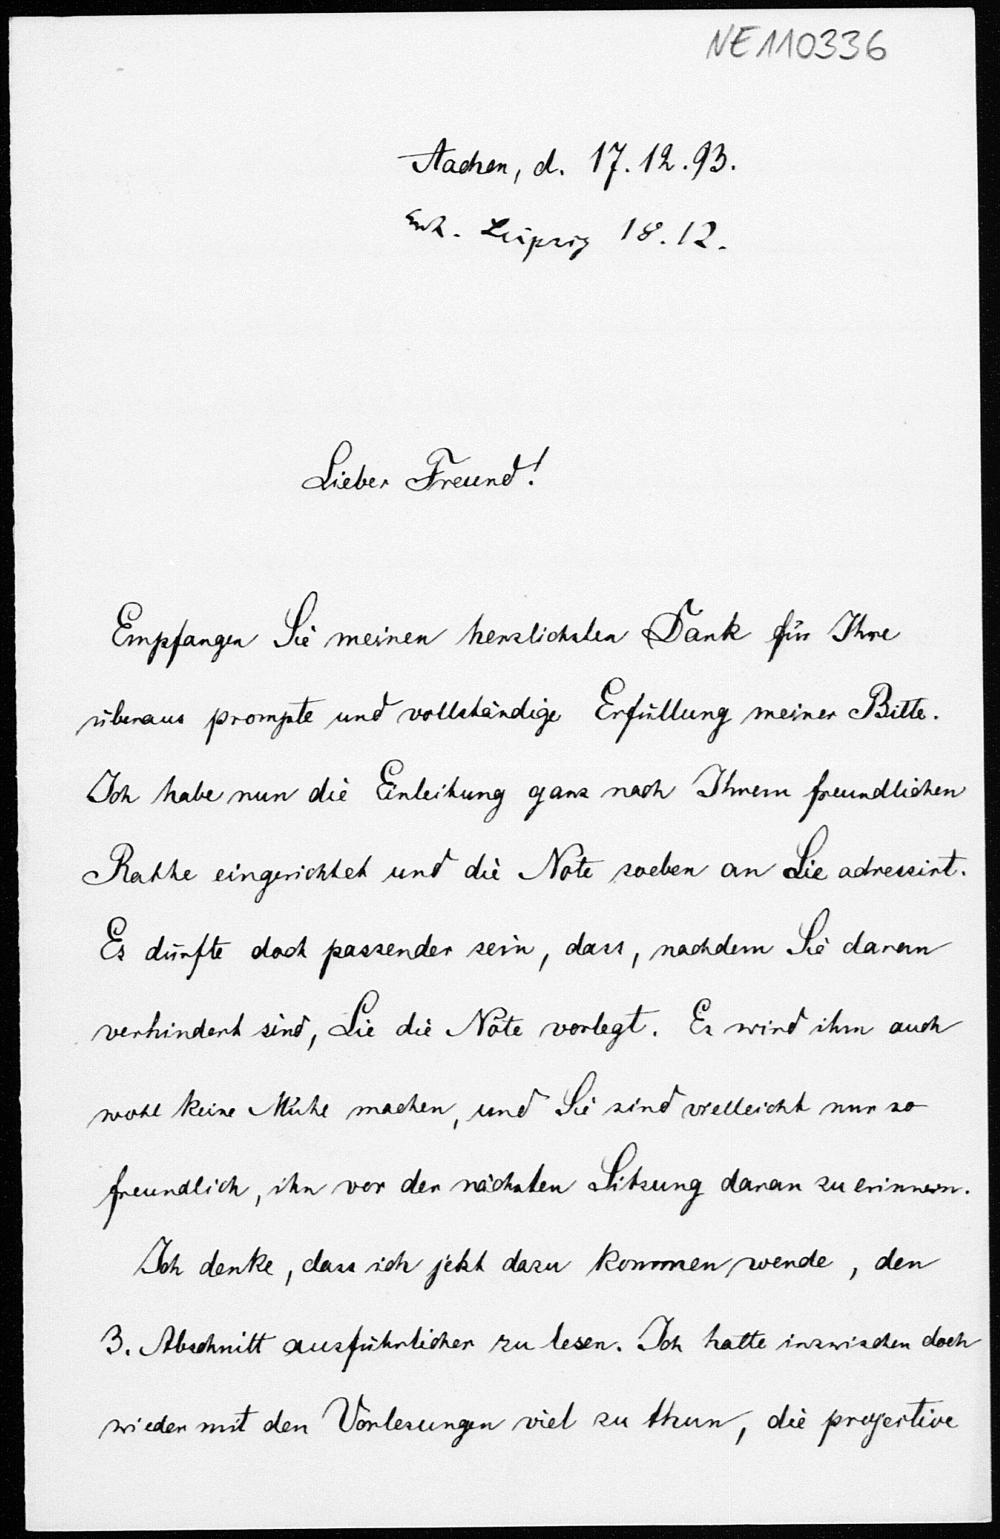 NE110336
Aachen, d. 17.12.93.
Erh. Leipzig 18.12.
Lieber Freund!
Empfangen Sie meinen herzlichsten Dank für Ihre
überaus prompte und vollständige Erfüllung meiner Bitte.
Ich habe nun die Einleitung ganz nach Ihrem freundlichen
Rathe eingerichtet und die Note soeben an Lie adressirt.
Es dürfte doch passender sein, dass, nachdem Sie daran
verhindert sind, Lie die Note vorlegt. Es wird ihm auch
wohl keine Mühe machen, und Sie sind vielleicht nur so
freundlich, ihn vor der nächsten Sitzung daran zu erinnern.
Ich denke, dass ich jetzt dazu kommen werde, den
3. Abschnitt ausführlicher zu lesen. Ich hatte inzwischen doch
wieder mit den Vorlesungen viel zu thun, die projective